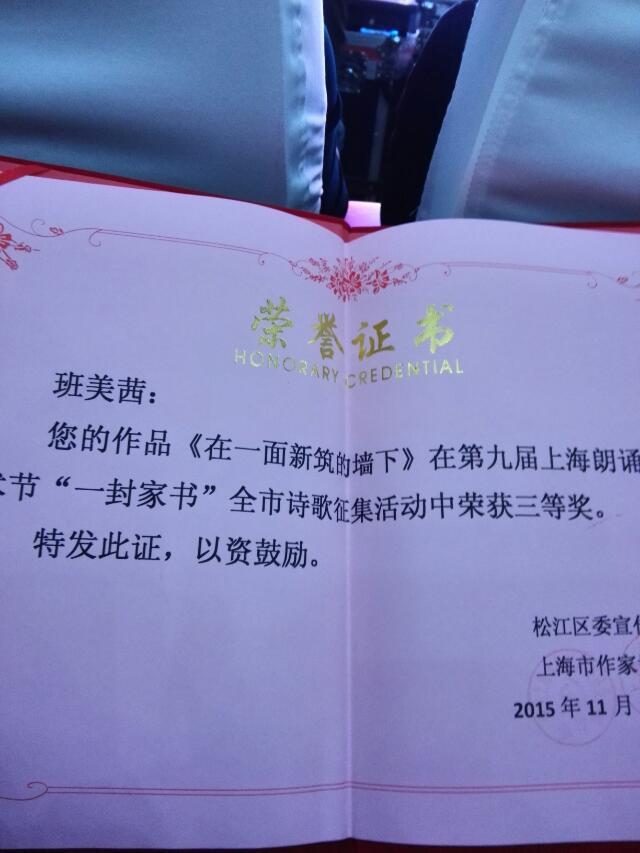 荣誉证书
HONORARY CREDENTIAL
班美茜：
您的作品《在一面新筑的墙下》在第九届上海朗诵
术节“一封家书”全市诗歌征集活动中荣获三等奖。
特发此证，以资鼓励。
松江区委宣传
上海市作家
2015 年 11 月